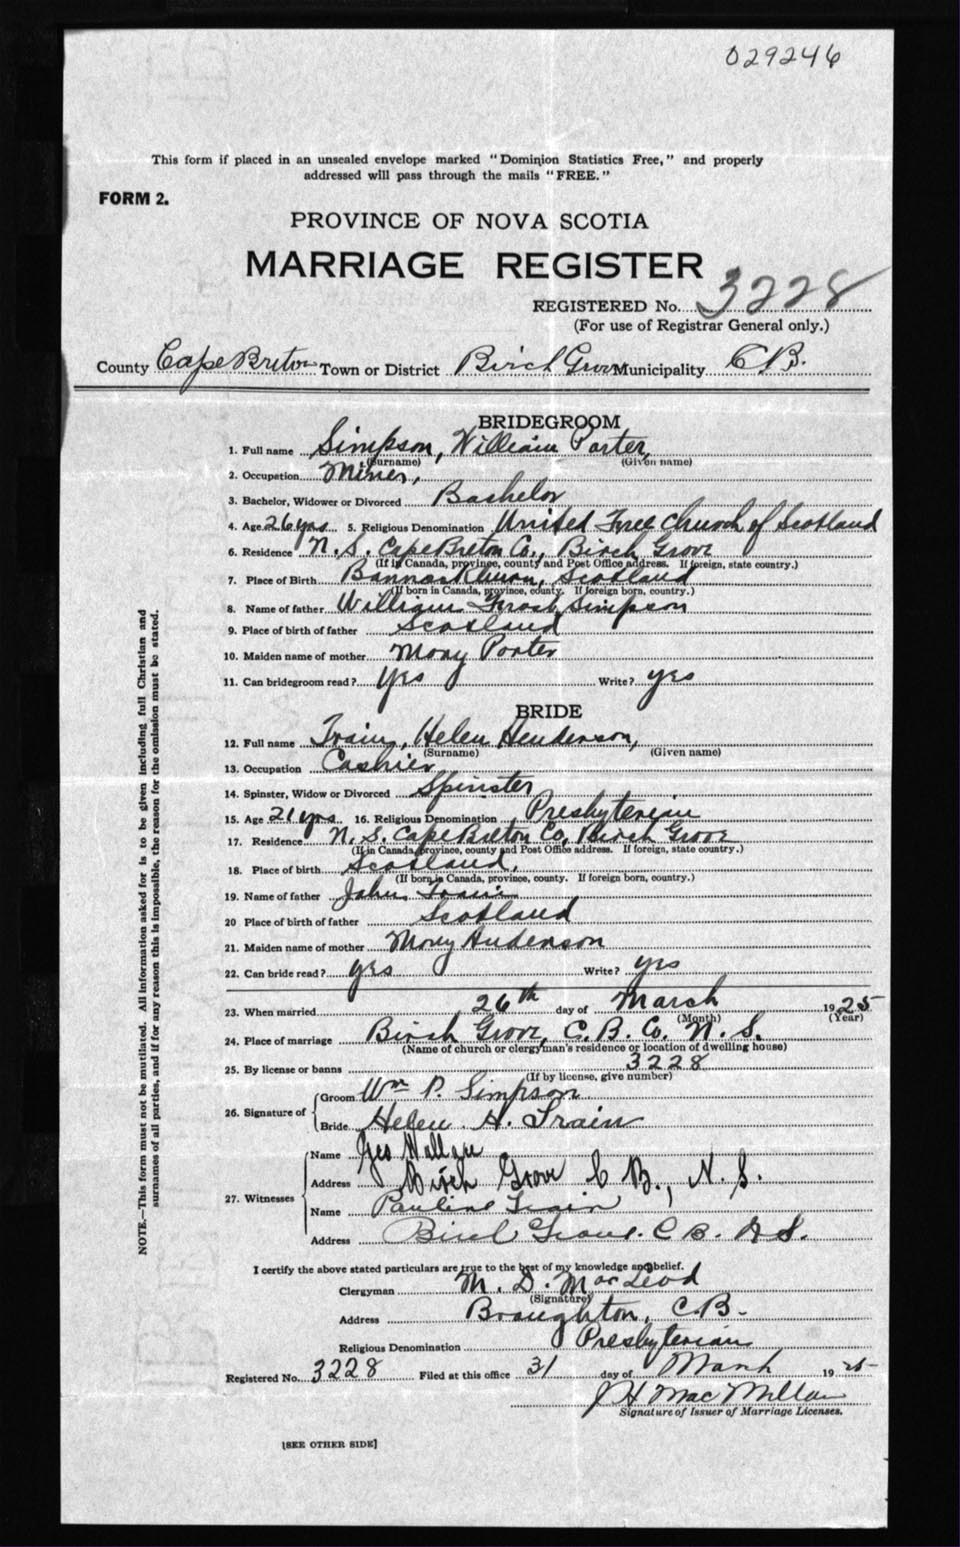 029246
This form if placed in an unsealed envelope marked "Dominion Statistics Free," and properly
addressed will pass through the mails "FREE."
FORM 2.
PROVINCE OF NOVA SCOTIA
MARRIAGE REGISTER
REGISTERED No. 3228
(For use of Registrar General only.)
County Cape Breton Town or District Birch Grove Municipality C.B.
BRIDEGROOM
1. Full name Simpson, William Porter,
(Surname) (Given name)
2. Occupation Miner,
3. Bachelor, Widower or Divorced Bachelor
4. Age 26 yrs. 5. Religious Denomination United Free Church of Scotland
6. Residence N.S. Cape Breton Co., Birch Grove
(If in Canada, province, county and Post Office address. If foreign, state country.)
7. Place of Birth Scotland
(If born in Canada, province, county. If foreign born, country.)
8. Name of father William Simpson
9. Place of birth of father Scotland
10. Maiden name of mother Mary Porter
11. Can bridegroom read? Yes Write? yes
BRIDE
12. Full name Train, Helen Henderson,
(Surname) (Given name)
13. Occupation Cashier
14. Spinster, Widow or Divorced Spinster
15. Age 21 yrs. 16. Religious Denomination Presbyterian
17. Residence N.S. Cape Breton Co, Birch Grove
(If in Canada, province, county and Post Office address. If foreign, state country.)
18. Place of birth Scotland,
(If born in Canada, province, county. If foreign born, country.)
19. Name of father John Train
20 Place of birth of father Scotland
21. Maiden name of mother Mary Henderson
22. Can bride read? yes Write? yes
23. When married 26th day of March 1925
(Month) (Year)
24. Place of marriage Birch Grove, C.B. Co. N.S.
(Name of church or clergyman's residence or location of dwelling house)
25. By license or banns 3228
(If by license, give number)
26. Signature of Groom Wm P. Simpson
Bride Helen H. Train
27. Witnesses Name Geo Wallace
Address Birch Grove C B., N.S.
Name Pauline Train
Address Birch Grove. C.B. N.S.
I certify the above stated particulars are true to the best of my knowledge and belief.
Clergyman M. D. MacLeod
(Signature)
Address Broughton, C.B.
Religious Denomination Presbyterian
Registered No. 3228 Filed at this office 31 day of March 1925
J H MacMillan
Signature of Issuer of Marriage Licenses.
[SEE OTHER SIDE]
NOTE.—This form must not be mutilated. All information asked for is to be given including full Christian and
surnames of all parties, and if for any reason this is impossible, the reason for the omission must be stated.